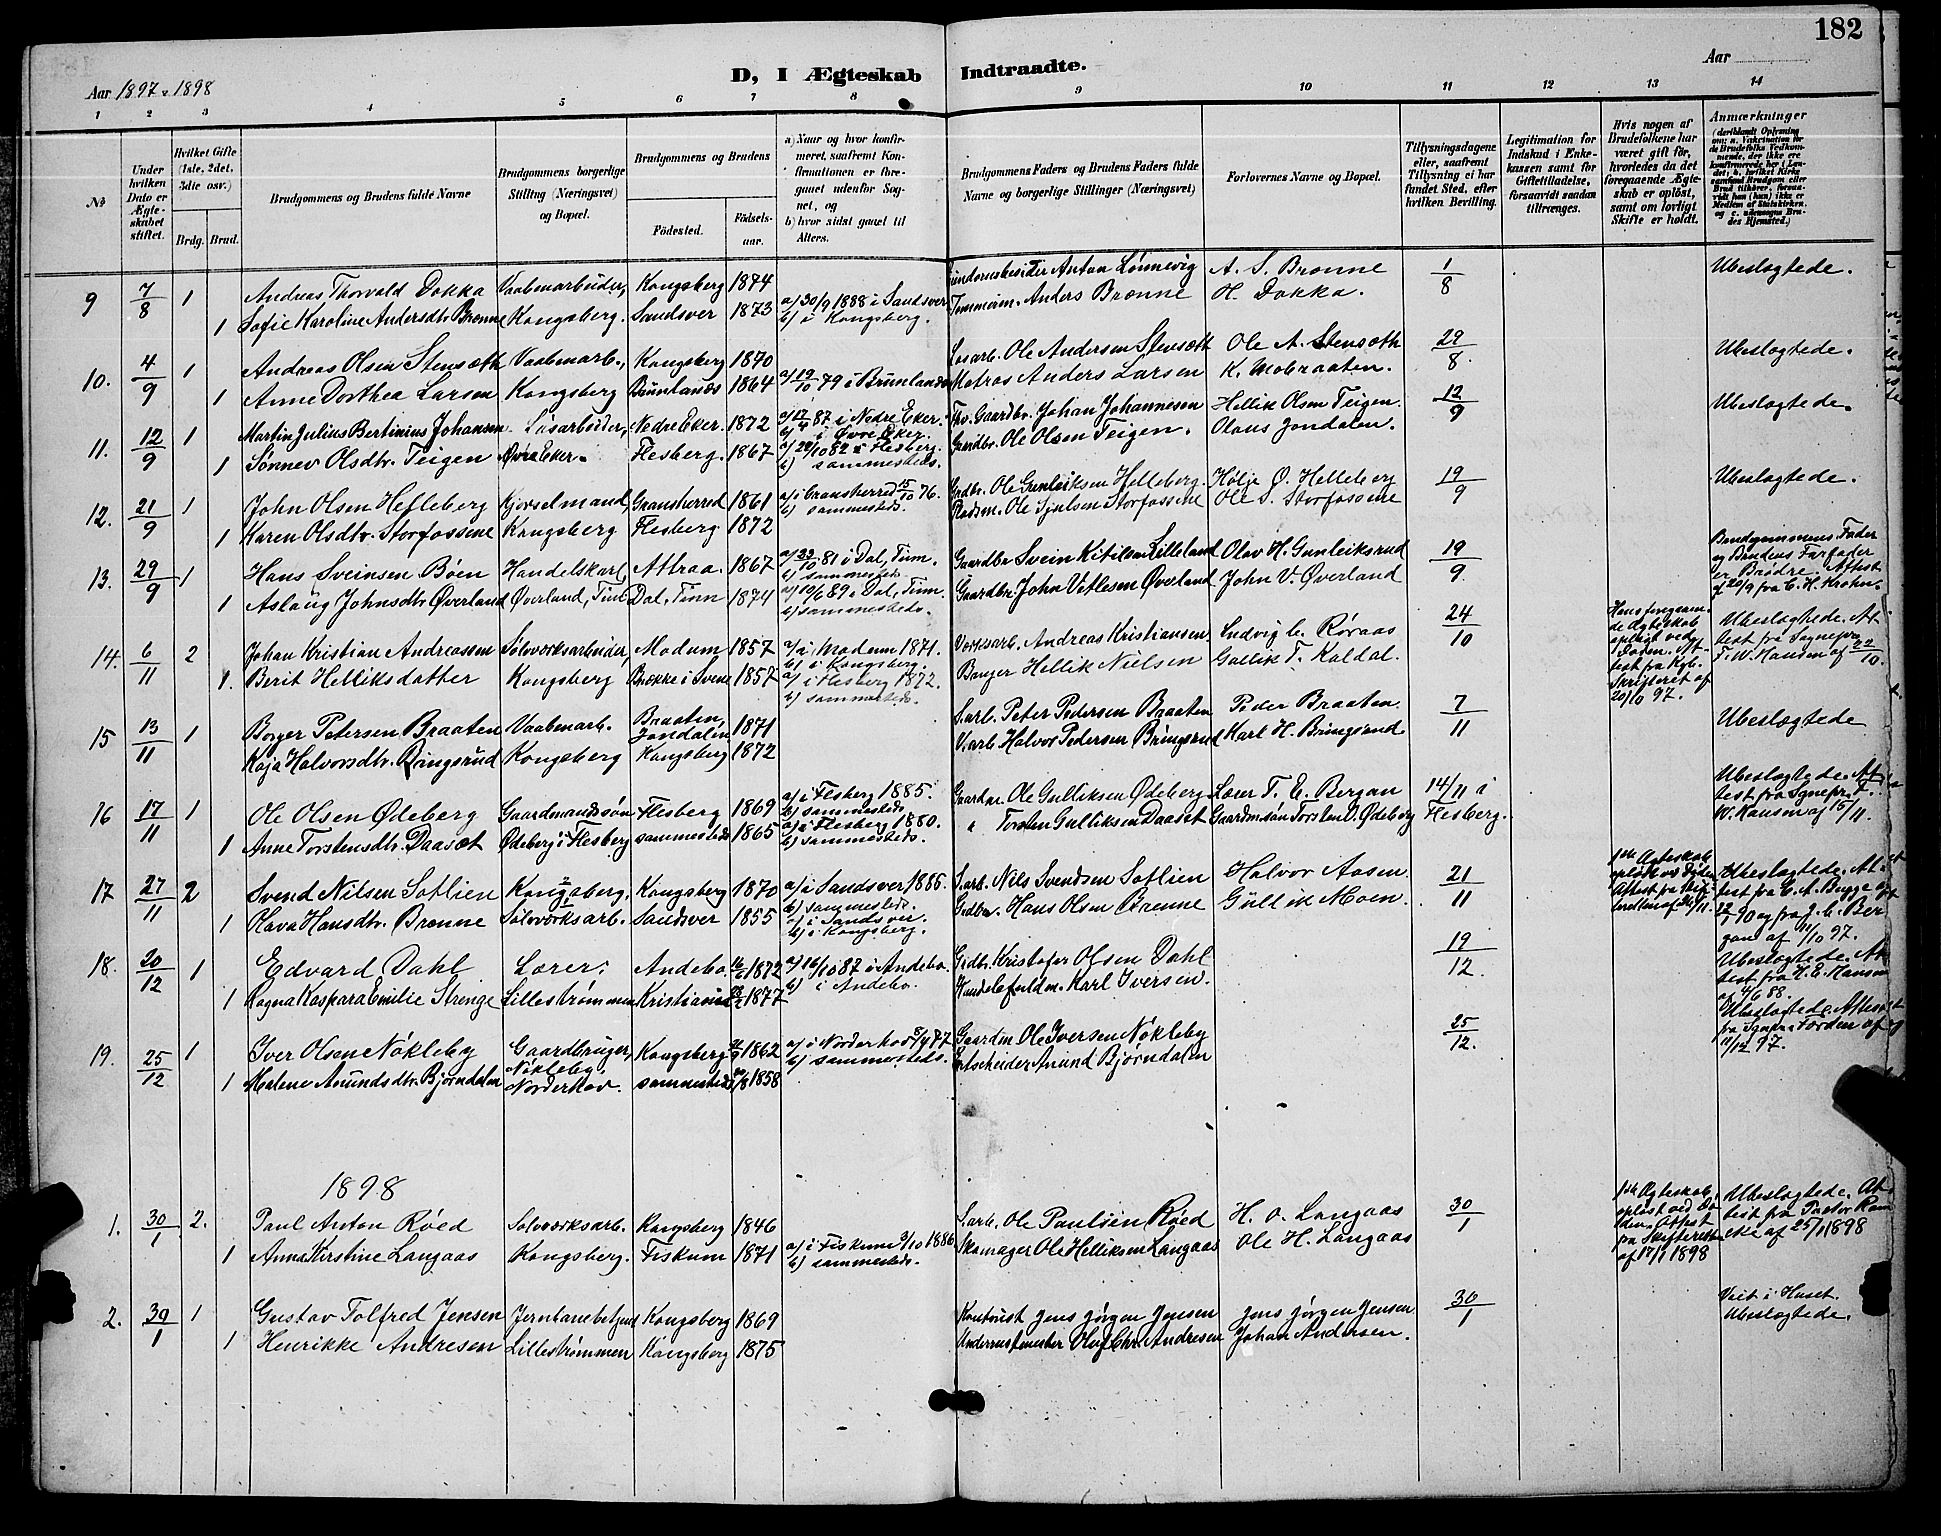 182
Aar 1897 & 1898
D, I Ægteskab Indtraadte.
Aar
1 2 3 4 5 6 7 8 9 10 11 12 13 14
No
Under hvilken Dato er Ægteskabet stiftet.
Hvilket Gifte (1ste, 2det, 3die osv.)
Brdg. Brud.
Brudgommens og Brudens fulde Navne
Brudgommens borgerlige Stilling (Næringsvei) og Bopæl.
Brudgommens og Brudens
Födested.
Födselsaar.
a) Naar og hvor konfirmeret, saafremt Konfirmationen er foregaaet udenfor Sognet, og
b) hvor sidst gaaet til Alters.
Brudgommens Faders og Brudens Faders fulde Navne og borgerlige Stillinger (Næringsvei)
Forlovernes Navne og Bopæl.
Tillysningsdagene eller, saafremt Tillysning ei har fundet Sted, efter hvilken Bevilling.
Legitimation for Indskud i Enkekassen samt for Giftetilladelse, forsaavidt saadan tiltrænges.
Hvis nogen af Brudefolkene har været gift för, hvorledes da det foregaaende Ægteskab er oplöst, samt om lovligt Skifte er holdt.
Anmærkninger
9 7/8 1 Andreas Thorvald Dokka Vaabenarbeider, Kongsberg 1874 Anton Lønnevig A. S. Brønne 1/8 Ubeslægtede.
1 Sofie Karoline Andersdtr. Brønne Kongsberg. Sandsver 1873 a) 30/9 1888 i Sandsver b) i Kongsberg. Tømmerm. Anders Brønne H. Dokka.
10. 4/9 1 Andreas Olsen Stensæth Vaabenarb., Kongsberg 1870 Ole Andersen Stensæth Ole A. Stensæth 29/8. Ubeslægtede.
1 Anne Dorthea Larsen Kongsberg Brunlanæs 1864 a) 19/10 79 i Brunlanæs Matros Anders Larsen K. Mobraaten.
11. 12/9 1 Martin Julius Bertinius Johansen Løsarbeider, Nedre Eker. 1872 a) 17/4 87 i Nedre Eker. b) i Øvre Eker. Gaardbr. Johan Johannesen Hellik Olsen Teigen. 12/9 Ubeslægtede.
1 Sønnev Olsdtr. Teigen Øvre Eker. Flesberg. 1867 a) 29/10 82 i Flesberg. b) sammesteds. Gaardbr. Ole Olsen Teigen. Olaus Jondalen.
12. 21/9 1 John Olsen Helleberg Kjørselmand, Gransherred 1861 a) i Gransherred 15/10 76. b) sammesteds. Grdbr. Ole Gunleiksen Helleberg. Hølje O. Helleberg 19/9 Ubeslægtede.
1 Karen Olsdtr. Storfossene Kongsberg Flesberg 1872 Ole Sjulsen Storfossene Ole S. Storfossene
13. 29/9 1 Hans Sveinsen Bøen Handelskarl, Attraa. 1867 a) 23/10 81 i Dal, Tinn. b) sammesteds. Gaardbr Svein Kitilsen Lilleland Olav H. Gunleiksrud 19/9. Brudgommens Fader og Brudens Farfader er Brødre. Attest af 20/9 fra C. H. Krohn.
1 Aslaug Johnsdtr. Øverland Øverland, Tinn Dal, Tinn 1874 a) 10/6 89 i Dal, Tinn. b) sammesteds. Gaardbr. John Vetlesen Øverland John V. Øverland
14. 6/11 2 Johan Kristian Andreassen Sølvverksarbeider, Modum 1857 a) i Modum 1871. b) i Kongsberg. Verksarb. Andreas Kristiansen. Ludvig C. Røraas 24/10 Hans foregaaende Ægteskab opløst ved Døden. Attest fra Kgb. Skifteret af 20/10 97. Ubeslægtede. Attest fra Sognepr. F. W. Hansen af 22/10.
1. Berit Helliksdatter Kongsberg Brække i Svene 1857 a) i Flesberg 1872. b) sammesteds. Hellik Nielsen Gullik T. Kaldal.
15 13/11 1 Borger Petersen Braaten Vaabenarb. Braaten, Jondalen 1871 S.arb. Peter Pedersen Braaten Peder Braaten 7/11 Ubeslægtede
Kaja Halvorsdtr. Bringsrud Kongsberg Kongsberg 1872 V.arb. Halvor Pedersen Bringsrud Karl H. Bringsrud
16 17/11 1 Ole Olsen Ødeberg Gaardmandssøn Flesberg 1869 a) i Flesberg 1885. b) sammesteds. Ole Gulliksen Ødeberg Lærer T. E. Bergan 14/11 i Flesberg. Ubeslægtede. Attest fra Sgnepr. F. W. Hansen af 15/11.
1 Anne Torstensdtr. Daaset Ødeberg i Flesberg sammesteds 1865 a) i Flesberg 1880. b) sammesteds. " Torsten Gulliksen Daaset Gaardmdsøn Torsten O. Ødeberg
17 27/11 2 Svend Nilsen Sætlien Kongsberg, Kongsberg 1870 a) i Sandsver 1886. b) sammesteds. S.arb. Nils Svendsen Sætlien Halvor Aasen 21/11 1ste Ægteskab opløst ved Døden Attest fra Skifteretten af 26/11. Ubeslægtede. Attest fra C. A. Bugge af 22/1 90 og fra J. C. Bergan af 11/10 97.
1 Olava Hansdtr. Brønne Sølvverksarb. Sandsver 1855 a) i Sandsver. b) i Kongsberg. Grdbr. Hans Olsen Brønne Gullik Moen.
18. 20/12 1 Edvard Dahl Lærer; Andebo. 1872 a) 16/10 87 i Andebo. b) i Andebo. Grdbr. Kristofer Olsen Dahl 19/12. Ubeslægtede. Attest fra H. E. Hansen af 4/6 88.
1 Ragna Kaspara Emilie Strenge Lillestrømmen Kristiania 1877 Handelsfuldm. Karl Iversen.
19. 25/12 1 Iver Olsen Nøkleby Gaardbruger, Nøkleby, Norderhov. Kongsberg 1862 a) i Norderhov 8/4 77 b) sammesteds. Gaardm Ole Iversen Nøkleby 25/12. Ubeslægtede. Attest fra Sgnepr. Førden af 11/12 97.
1 Malene Amundsdtr. Bjørndalen sammesteds 1858 Amund Bjørndalen
1898
1. 30/1 2. Paul Anton Røed Sølvverksarb. Kongsberg 1846 S.arb. Ole Paulsen Røed H. O. Langaas 30/1 1ste Ægteskab opløst ved Døden. Attest fra Skifteretten af 17/1 1898 Ubeslægtede. Attest fra Pastor Ramm eke af 25/1 1898
1 Anna Kirstine Langaas Kongsberg. Fiskum 1871 a) i Fiskum 3/10 1886 b) sammesteds. Skomager Ole Helliksen Langaas Ole H. Langaas
2. 30/1 1 Gustav Tolfred Jensen Jernbanebetjent Kongsberg 1869 Kontorist Jens Jørgen Jensen Jens Jørgen Jensen 30/1 Viet i Huset. Ubeslægtede.
1 Henrikke Andresen Lillestrømmen Kongsberg 1875 Oluf Chr. Andresen Johan Andersen.